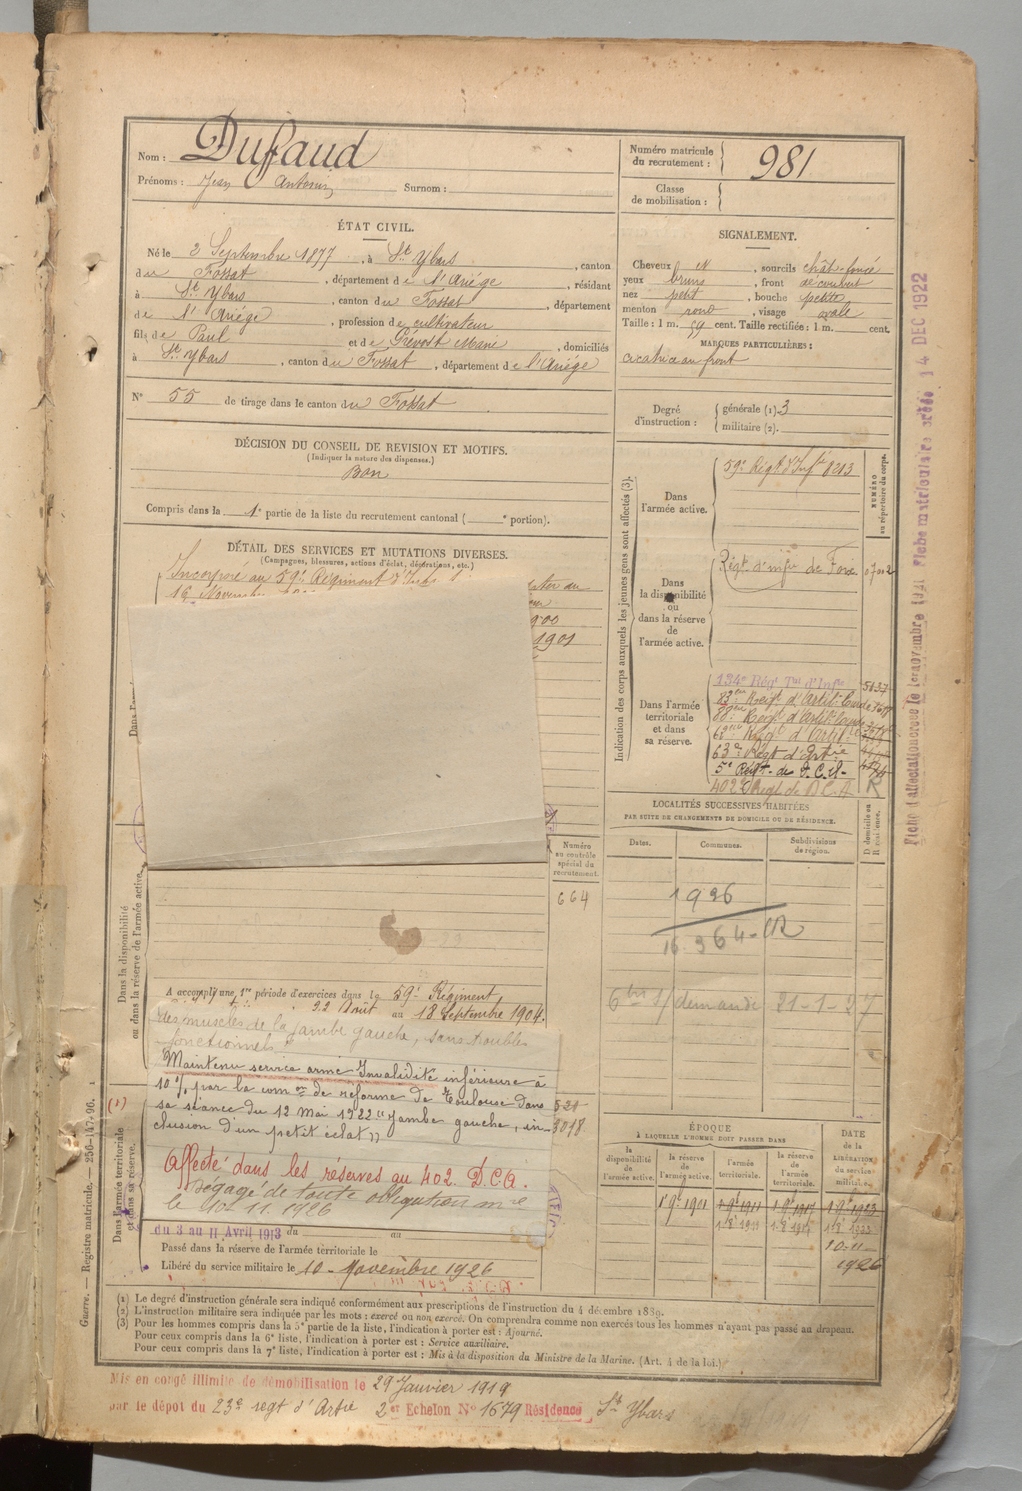 Nom : Dufaud
Prénoms : Jean Antonin Surnom :
Numéro matricule du recrutement : 981
Classe de mobilisation :
ÉTAT CIVIL.
Né le 2 Septembre 1877, à St Ybars, canton
du Fossat, département de l'Ariège, résidant
à St Ybars, canton du Fossat, département
de l'Ariège, profession de cultivateur
fils de Paul et de Prévost Marie, domiciliés
à St Ybars, canton du Fossat, département de l'Ariège
N° 55 de tirage dans le canton du Fossat
DÉCISION DU CONSEIL DE REVISION ET MOTIFS.
(Indiquer la nature des dispenses.)
Bon
Compris dans la 1e partie de la liste du recrutement cantonal ( e portion).
DÉTAIL DES SERVICES ET MUTATIONS DIVERSES.
(Campagnes, blessures, actions d'éclat, décorations, etc.)
Incorporé au 59e Régiment d'Inf
16 Novembre
1901
SIGNALEMENT.
Cheveux N, sourcils chât-foncé
yeux bruns, front découvert
nez petit, bouche petite
menton rond, visage ovale
Taille : 1 m. 59 cent. Taille rectifiée : 1 m. cent.
MARQUES PARTICULIÈRES :
cicatrice au front
Degré d'instruction : générale (1) 3
militaire (2).
Indication des corps auxquels les jeunes gens sont affectés (3).
NUMÉRO au répertoire du corps.
Dans l'armée active.
59e Régt d'Infie 8213
Dans la disponibilité ou dans la réserve de l'armée active.
Régt d'infie de Foix
Dans l'armée territoriale et dans sa réserve.
134e Régt Tal d'Infie 5137
83ème Régt d'Artie Lourde
88ème Régt d'Artie Lourde
68ème Régt d'Artie
63e Régt d'Artie
5e Régt de D.C.A.
402 Régt de D.C.A R
LOCALITÉS SUCCESSIVES HABITÉES
PAR SUITE DE CHANGEMENTS DE DOMICILE OU DE RÉSIDENCE.
Dates. Communes. Subdivisions de région. D domicile ou R résidence.
1926
16.364
demande 21-1-27
Numéro au contrôle spécial du recrutement.
664
Dans la disponibilité ou dans la réserve de l'armée active.
A accompli une 1re période d'exercices dans le 59e Régiment
22 Août au 18 Septembre 1904.
des muscles de la jambe gauche, sans troubles
fonctionnels
Maintenu service armé Invalidité inférieure à
10 % par la comon de réforme de Toulouse dans
sa séance du 12 mai 1922 "jambe gauche, in-
clusion d'un petit éclat"
521
3018
(1)
Affecté dans les réserves au 402. D.C.A.
Dégagé de toute obligation mre
le 10.11.1926
Dans l'armée territoriale et dans sa réserve.
du 3 au 11 Avril 1913 du au
Passé dans la réserve de l'armée territoriale le
Libéré du service militaire le 10 Novembre 1926
ÉPOQUE
À LAQUELLE L'HOMME DOIT PASSER DANS
DATE de la LIBÉRATION du service militaire.
la disponibilité de l'armée active. la réserve de l'armée active. l'armée territoriale. la réserve de l'armée territoriale.
1 9bre 1901 1 9bre 1911 1 9bre 1917 1 9bre 1923
10-11-
1926
(1) Le degré d'instruction générale sera indiqué conformément aux prescriptions de l'instruction du 4 décembre 1889.
(2) L'instruction militaire sera indiquée par les mots : exercé ou non exercé. On comprendra comme non exercés tous les hommes n'ayant pas passé au drapeau.
(3) Pour les hommes compris dans la 5e partie de la liste, l'indication à porter est : Ajourné.
Pour ceux compris dans la 6e liste, l'indication à porter est : Service auxiliaire.
Pour ceux compris dans la 7e liste, l'indication à porter est : Mis à la disposition du Ministre de la Marine. (Art. 4 de la loi.)
Mis en congé illimité de démobilisation le 29 Janvier 1919
par le dépôt du 23e regt d'Artie 2e Echelon N° 1679 Résidence St Ybars
Guerre. — Registre matricule. — 256-147-96.
Fiche d'affectation créée le 1er novembre 1921 Fiche matriculaire créée 14 DEC 1922